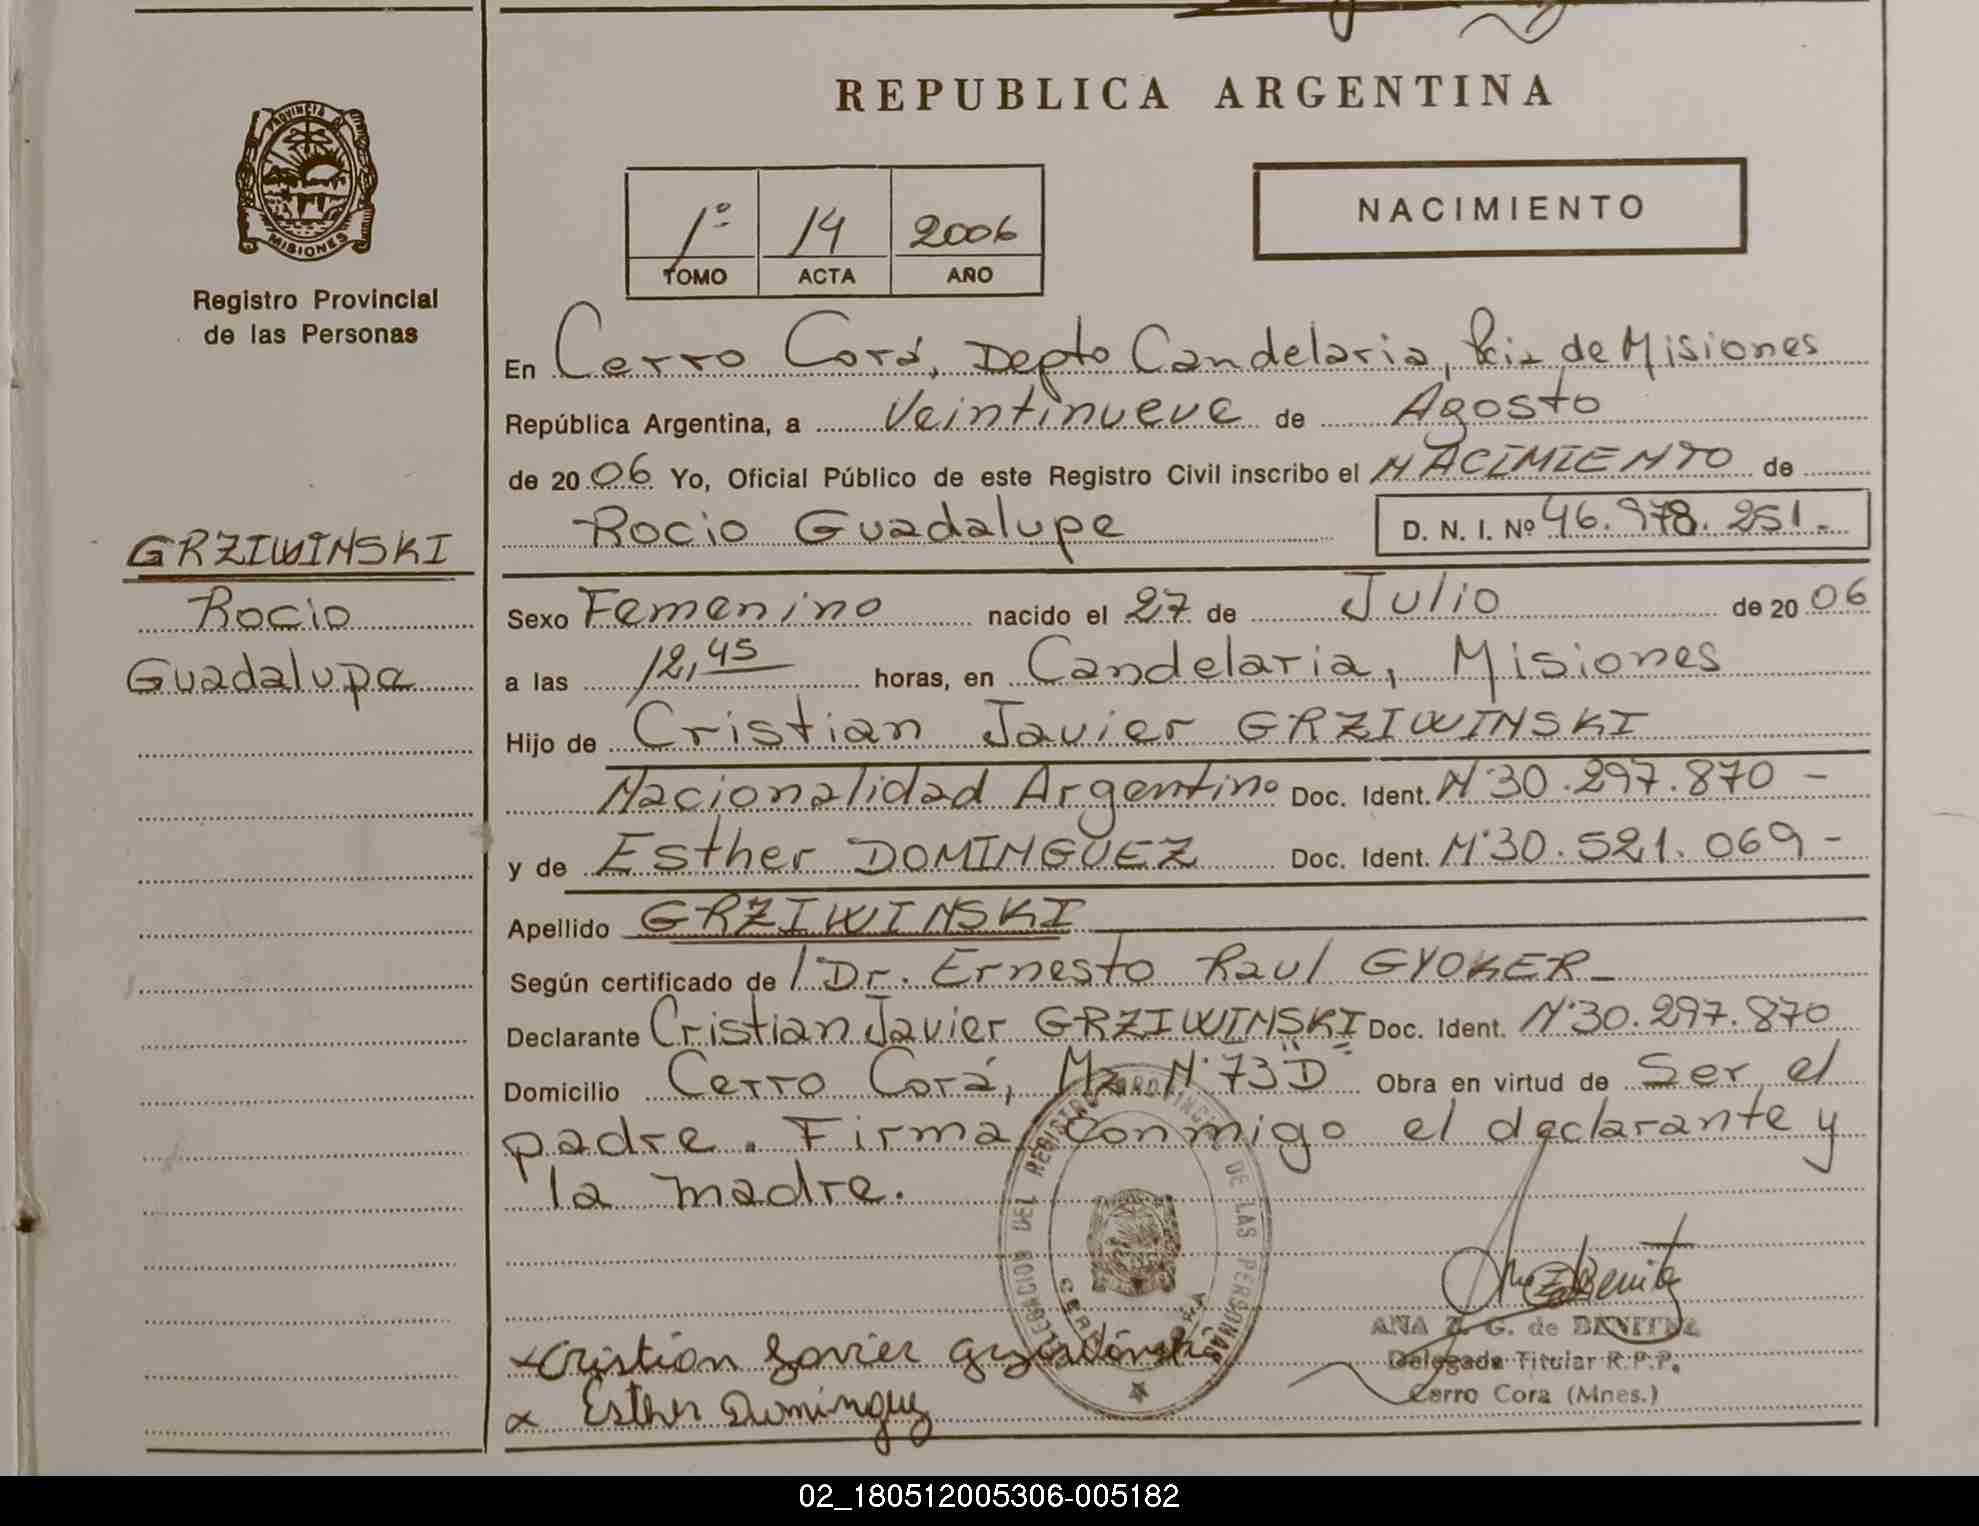 REPUBLICA ARGENTINA
PROVINCIA DE
MISIONES
Registro Provincial
de las Personas
1º 14 2006
TOMO ACTA AÑO
NACIMIENTO
En Cerro Corá, Depto Candelaria, Pcia de Misiones
República Argentina, a Veintinueve de Agosto
de 2006 Yo, Oficial Público de este Registro Civil inscribo el NACIMIENTO de
Rocio Guadalupe D. N. I. Nº 46.978.251.-
GRZIWINSKI
Rocio
Guadalupe
Sexo Femenino nacido el 27 de Julio de 2006
a las 12,45 horas, en Candelaria, Misiones
Hijo de Cristian Javier GRZIWINSKI
Nacionalidad Argentino Doc. Ident. Nº30.297.870-
y de Esther DOMINGUEZ Doc. Ident. Nº30.521.069-
Apellido GRZIWINSKI
Según certificado de / Dr. Ernesto Raul GYOKER-
Declarante Cristian Javier GRZIWINSKI Doc. Ident. Nº30.297.870
Domicilio Cerro Corá, Mz Nº73"D" Obra en virtud de Ser el
padre. Firma conmigo el declarante y
la madre.
DELEGACION DEL REGISTRO PROVINCIAL DE LAS PERSONAS
CERRO CORA
ANA Z. G. de BENITEZ
Delegada Titular R.P.P.
Cerro Cora (Mnes.)
x Cristian Javier Grziwinski
x Esther Dominguez
02_180512005306-005182